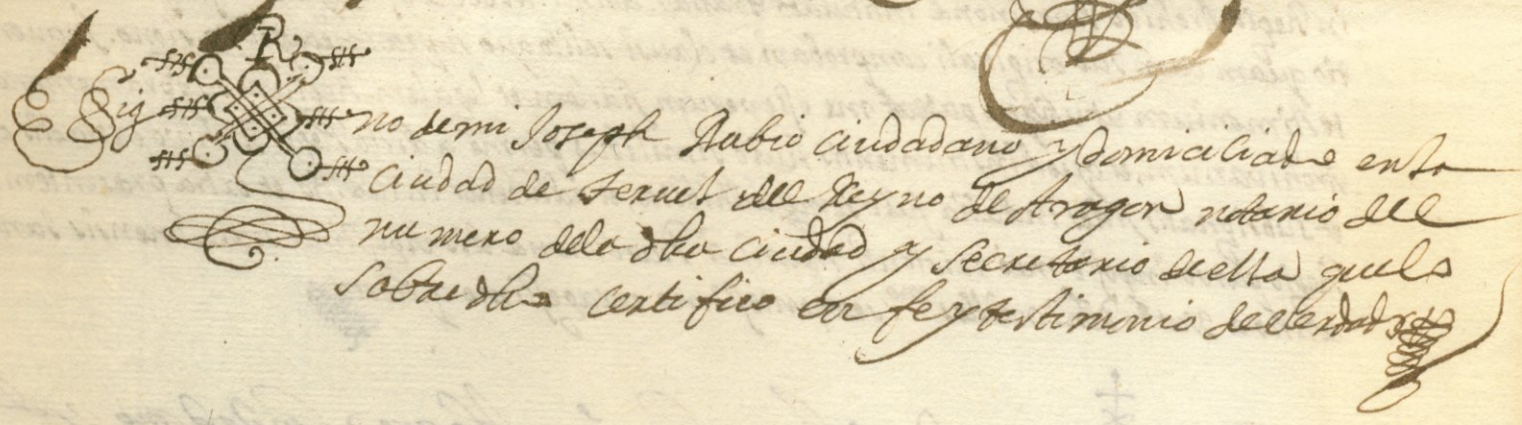 Sig no de mi Joseph Rubio ciudadano y domiciliado en la
ciudad de Teruel del Reyno de Aragon notario del
numero dela dha ciudad y secretario de ella que lo
sobredho certifico en fe y testimonio de verdad